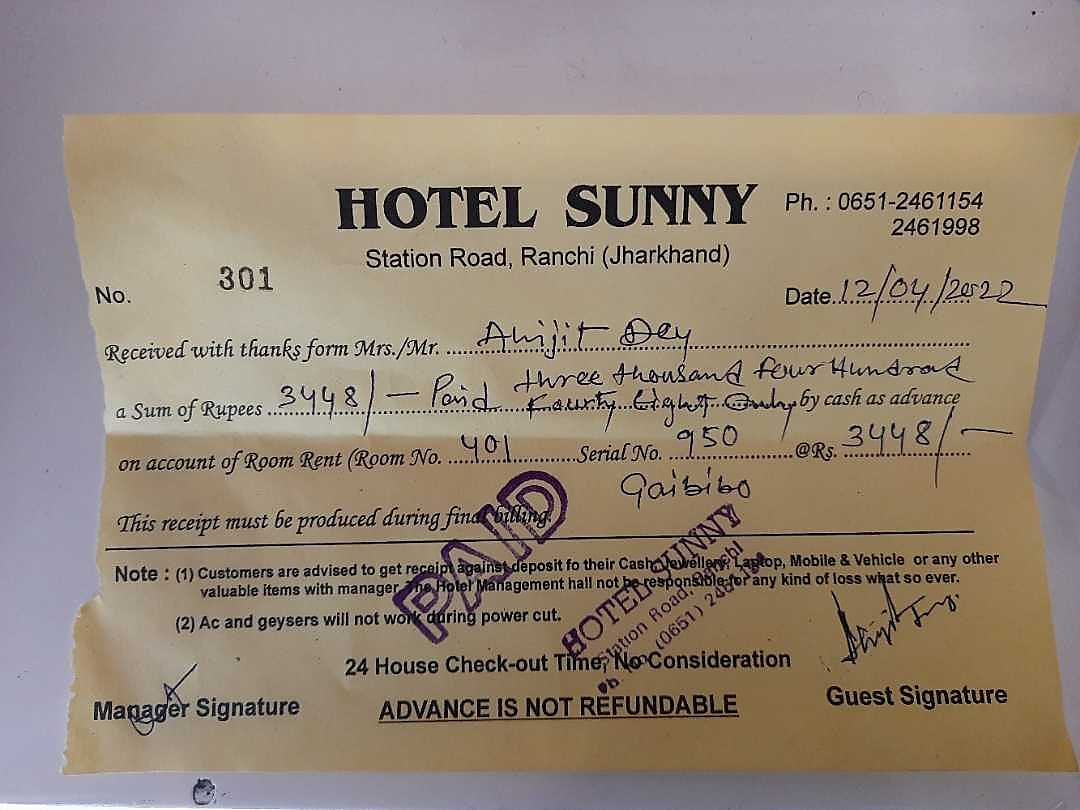 HOTEL SUNNY
Ph. : 0651-2461154
2461998
Station Road, Ranchi (Jharkhand)
No. 301
Date 12/04/2022
Received with thanks form Mrs./Mr. Abhijit Dey
three thousand four Hundred
a Sum of Rupees 3448/- Paid Fourty Eight Only by cash as advance
on account of Room Rent (Room No. 401 Serial No. 950 @Rs. 3448/-
Goibibo
This receipt must be produced during final billing.
PAID
Note : (1) Customers are advised to get receipt against deposit fo their Cash Jewellery, Laptop, Mobile & Vehicle or any other
valuable items with manager The Hotel Management hall not be responsible for any kind of loss what so ever.
(2) Ac and geysers will not work during power cut.
HOTEL SUNNY
Station Road, Ranchi
(0651)
24 House Check-out Time, No Consideration
Manager Signature
ADVANCE IS NOT REFUNDABLE
Guest Signature